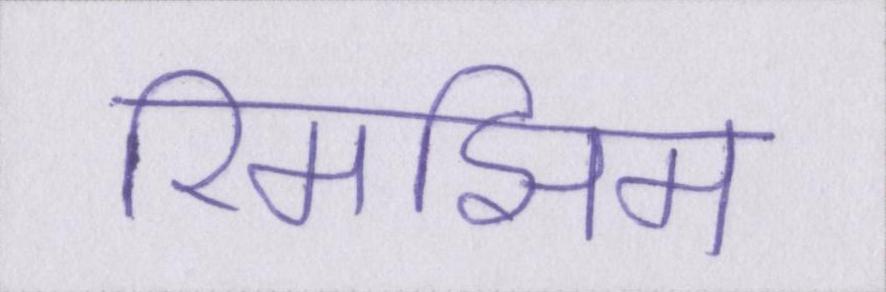 रिमझिम